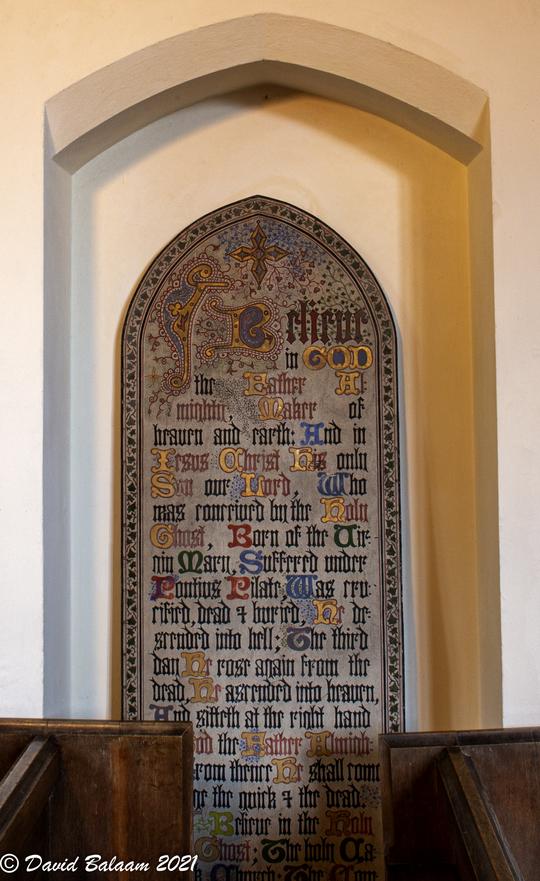 I Believe
in GOD
the Father Al:
mighty, Maker of
heaven and earth: And in
Jesus Christ His only
Son our Lord, Who
was conceived by the Holy
Ghost, Born of the Vir:
gin Mary, Suffered under
Pontius Pilate, Was cru:
cified, dead & buried, He de:
scended into hell; The third
day He rose again from the
dead, He ascended into heaven,
And sitteth at the right hand
God the Father Almigh:
From thence He shall come
the quick & the dead.
Believe in the Holy
Ghost; The holy Ca
Church; The Com
© David Balaam 2021